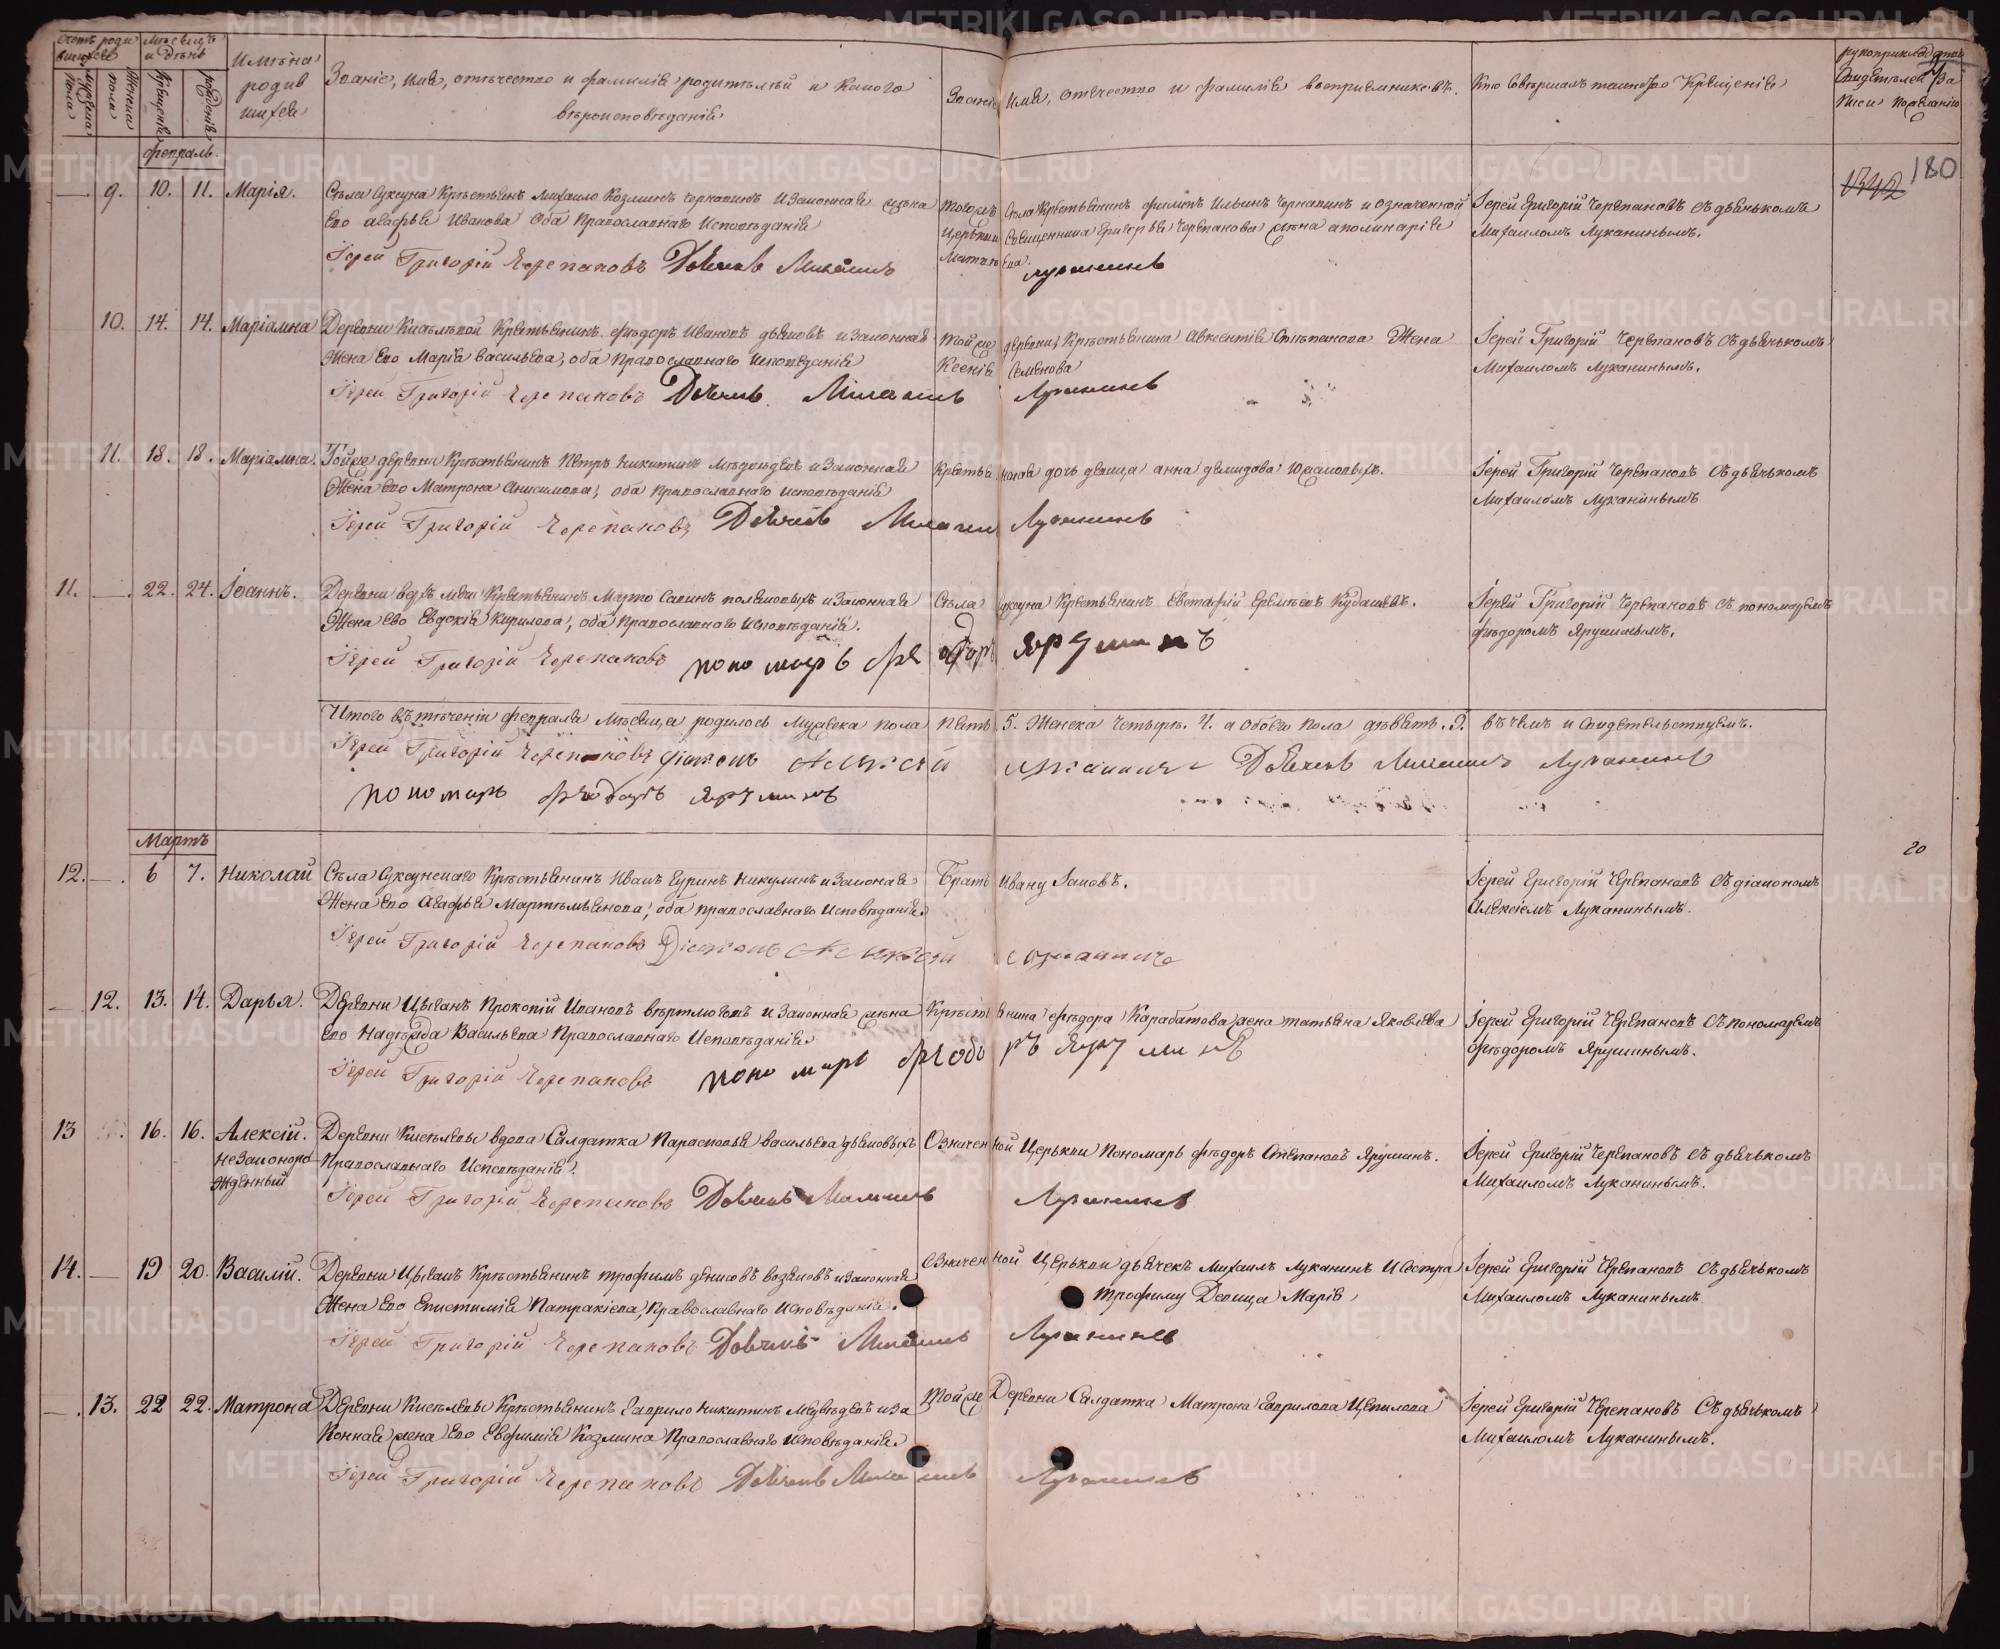 METRIKI.GASO-URAL.RU
Счетъ роди
вшихся
Мѣсяцъ
и День
мужеска
пола
Женска
пола
рожденія
Крещенія
Имѣна
родив
шихся
Званіе, Имя, отѣчество и фамилія родитѣлѣй и Какого
вѣроисповѣданія
Званіе Имя, отѣчество и фамилія воспріемниковъ.
Кто Совѣршалъ таинство Крѣщенія
рукоприкладство
Свидѣтѣлей За
писи пожеланію
180
февраль.
9. 10. 11. Марія.
Сѣла Суксуна Крѣстьянинъ Михайло Козминъ Черкапинъ и Законная жѣна
Его Агафья Иванова Оба Православнаго Исповѣданія
Іерей Григорій Черепановъ Дьячекъ Михаилъ
тогожъ Сѣла Крѣстьянинъ филипъ Ильинъ и означенной
Цѣрькви Священника Григорья Черепанова жѣна аполинарія
Луканинъ
Іерей Григорій Черепановъ Съ дьячькомъ
Михаиломъ Луканинымъ.
10. 14. 14. Маріамна
Деревни Киселѣвой Крѣстьянинъ фѣдоръ Ивановъ и Законная
Жена Его Марія васильева, оба Православнаго Исповѣданія
Іерей Григорій Черепановъ Дьячекъ Михаилъ Луканинъ
той же деревни, Крѣстьянина Авксентія Стѣпанова Жена
Ксенія Семенова
Іерей Григорій Черепановъ Съ дьячькомъ
Михаиломъ Луканинымъ.
11. 18. 18. Маріамна.
Тойже деревни Крѣстьянинъ Петръ Никитинъ Мѣдвѣдевъ и Законная
Жена Его Матрона Анисимова, оба Православнаго Исповѣданія
Іерей Григорій Черепановъ Дьячекъ Михаилъ Луканинъ
Крѣстьянская дочь девица анна демидова
Іерей Григорій Черепановъ Съ дьячькомъ
Михаиломъ Луканинымъ
11. — 22. 24. Іоаннъ.
Деревни Крѣстьянинъ Марко Савинъ и Законная
Жена Ево Евдокія Кирилова, оба Православнаго Исповѣданія.
Іерей Григорій Черепановъ пономарь Фѣодоръ Ярушинъ
Сѣла Суксуна Крѣстьянинъ Евстафій Еремѣевъ Кудашевъ.
Іерей Григорій Черепановъ Съ пономаремъ
фѣдоромъ Ярушинымъ.
Итого въ тѣченіи февраля Мѣсяца родилось Мужеска пола пять 5. Женска Четырѣ. 4. а обоего пола дѣвять. 9. въ чемъ и Свидетельствуемъ.
Іерей Григорій Черепановъ Діаконъ Алексѣй Луканинъ Дьячекъ Михаилъ Луканинъ
пономарь Фѣодоръ Ярушинъ
Мартъ
12. — 6 7. Николай
Сѣла Суксунскаго Крѣстьянинъ Иванъ Никулинъ и Законная
Жена Его Агафья Мартемьянова, оба православнаго Исповѣданія
Іерей Григорій Черепановъ Діаконъ Алексѣй Луканинъ
Братъ Ивану
Іерей Григорій Черепановъ Съ діакономъ
Алексіемъ Луканинымъ.
20
— 12. 13. 14. Дарья.
Деревни Цыганъ Прокопій Ивановъ и Законная жѣна
Его Надѣжда Васильева Православнаго Исповѣданія
Іерей Григорій Черепановъ пономарь Фѣодоръ Ярушинъ
Крѣстьянина фѣдора Карабатова жена татьяна Яковлева
Іерей Григорій Черепановъ Съ пономаремъ
фѣдоромъ Ярушинымъ.
13 16. 16. Алексій.
незаконоро
жденный
Деревни Киселевы вдова Салдатка Парасковья васильева
Православнаго Исповѣданія.
Іерей Григорій Черепановъ Дьячекъ Михаилъ Луканинъ
Означенной Церькви Пономарь фѣдоръ Степановъ Ярушинъ.
Іерей Григорій Черепановъ Съ дьячькомъ
Михаиломъ Луканинымъ.
14. — 19 20. Василій.
Деревни Цыганъ Крѣстьянинъ трофимъ денисовъ и Законная
Жена Его Епистимія Патракіева, Православнаго Исповѣданія.
Іерей Григорій Черепановъ Дьячекъ Михаилъ Луканинъ
Означенной Церькви дьячекъ Михаилъ Луканинъ и Сестра
трофиму Девица Марія
Іерей Григорій Черепановъ Съ дьячькомъ
Михаиломъ Луканинымъ.
— 13. 22 22. Матрона
Деревни Киселевы Крѣстьянинъ Гаврило Никитинъ Медвѣдевъ и За
Конная жена Его Евфимія Козмина Православнаго Исповѣданія
Іерей Григорій Черепановъ Дьячекъ Михаилъ Луканинъ
Той же Деревни Салдатка Матрона Гаврилова
Іерей Григорій Черепановъ Съ дьячькомъ
Михаиломъ Луканинымъ.